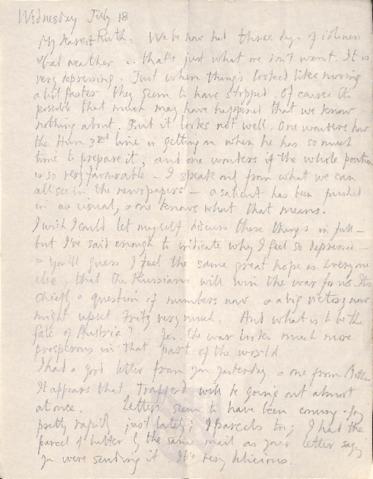 Wednesday July 18
My dearest Ruth. We've now had three days of idleness
& bad weather that's just what we don't want. It is
very depressing. Just when things looked like moving
a bit faster they seem to have stopped. Of course it's
possible that much may have happened that we know
nothing about. But it looks not well. One wonders how
the Hun 3rd line is getting on when he has so much
time to prepare it; and one wonders if the whole position
is so very favourable - I speak only from what we can
all see in the newspapers - a salient has been pushed
in as usual, & one knows what that means.
I wish I could let myself discuss these things in full -
but I've said enough to indicate why I feel so depressed -
& you'll guess I feel the same great hope as everyone
else that the Russians will win the war for us. It's
chiefly a question of numbers now & a big victory now
might upset Fritz very much. And what is to be the
fate of Austria? Yes, the war looks much more
prosperous in that part of the world
I had a good letter from you yesterday & one from
It appears that Trafford will be going out almost
at once. Letters seem to have been coming
pretty rapidly just lately; & parcels too; I had the
parcel of butter by the same mail as your letter say
you were sending it. It's very delicious.